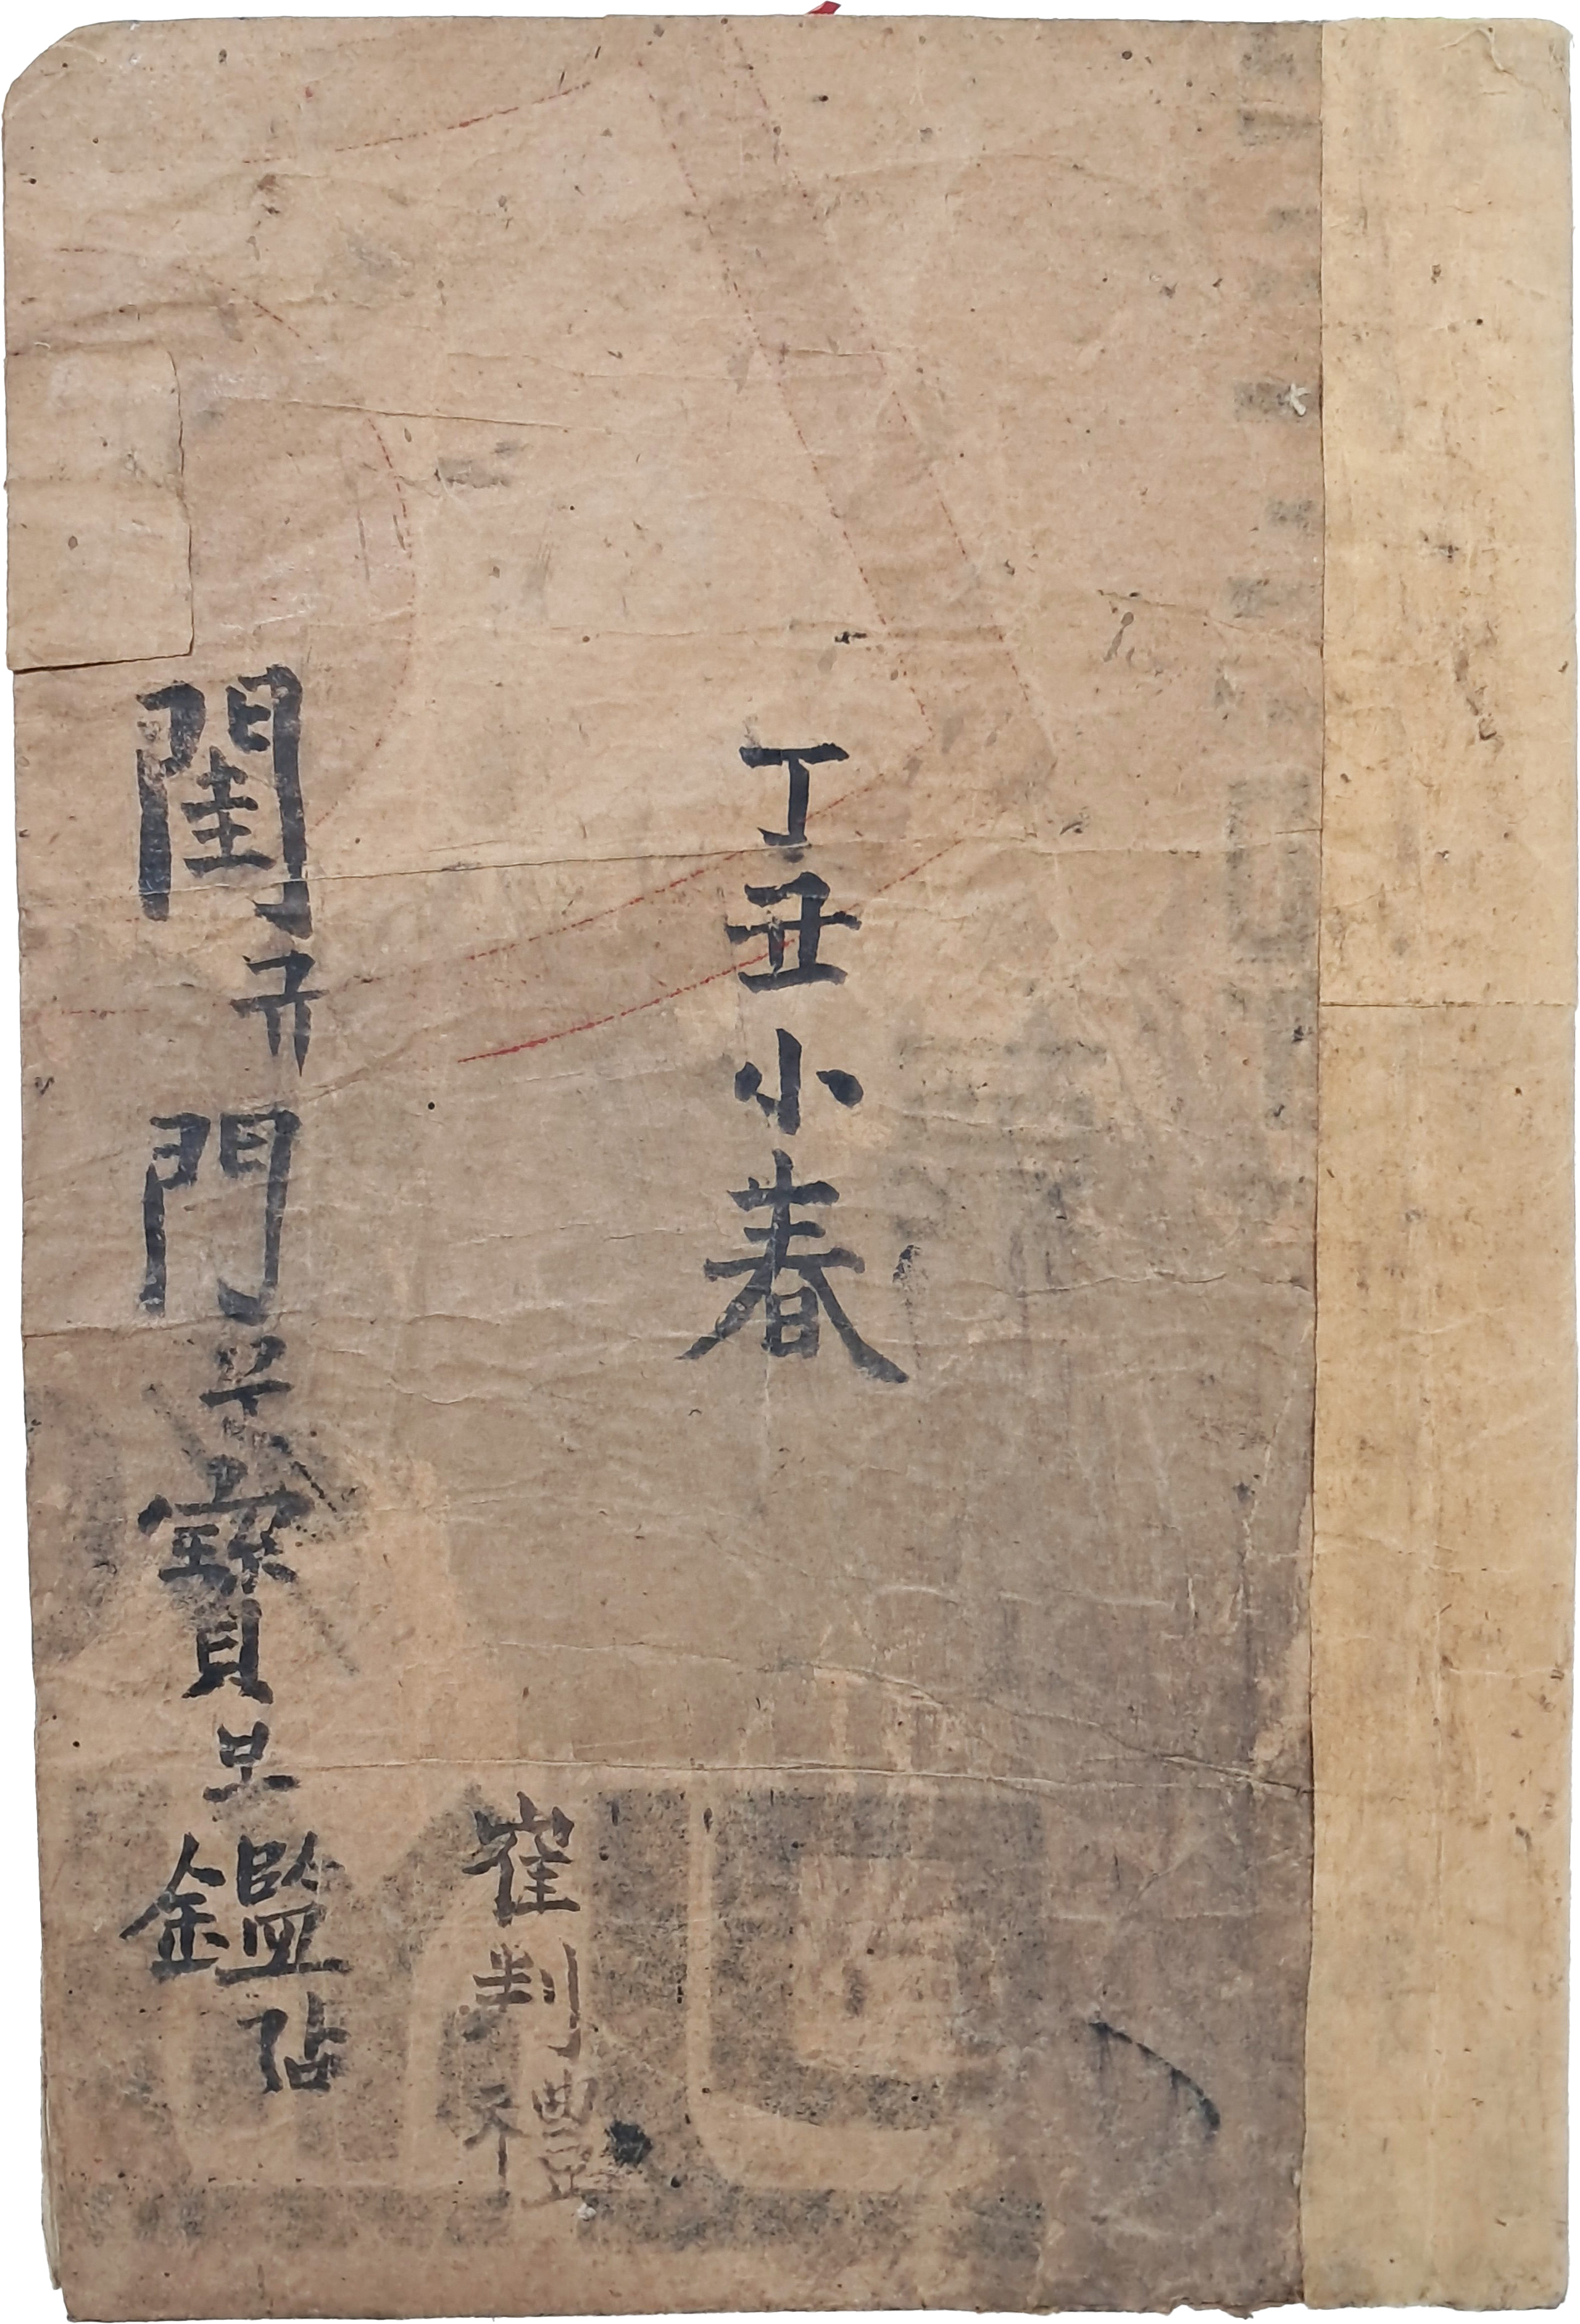 丁丑小春
崔判禮
閨규門문寶보鑑감